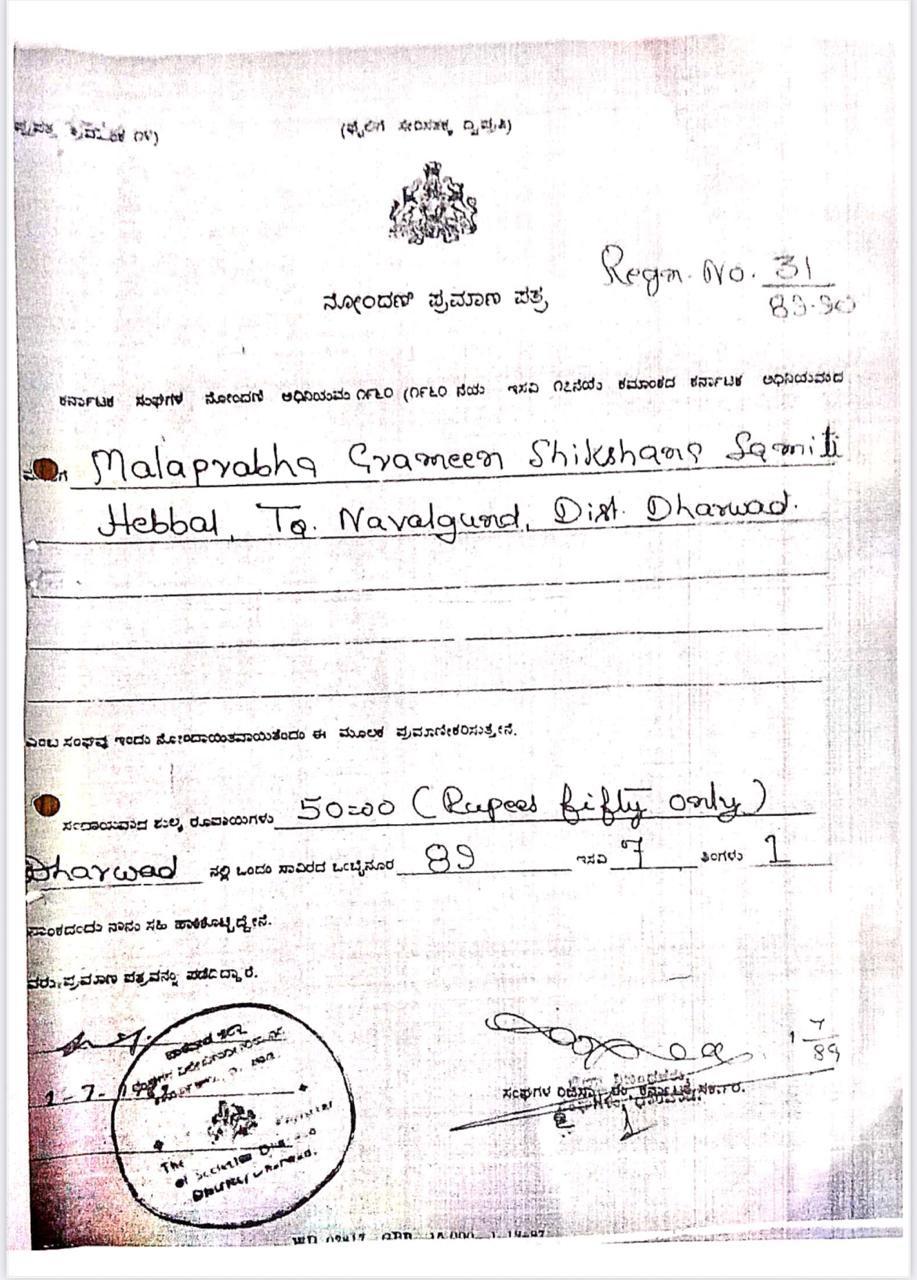 (ಫೈಲಿಗೆ ಸೇರಿಸತಕ್ಕ ದ್ವಿಪ್ರತಿ)
Regn. No. 31
89-90
ನೋಂದಣಿ ಪ್ರಮಾಣ ಪತ್ರ
ಕರ್ನಾಟಕ ಸಂಘಗಳ ನೋಂದಣಿ ಅಧಿನಿಯಮ ೧೯೬೦ (೧೯೬೦ ನೆಯ ಇಸವಿ ೧೭ನೆಯ ಕ್ರಮಾಂಕದ ಕರ್ನಾಟಕ ಅಧಿನಿಯಮದ
Malaprabha Grameen Shikshana Samiti
Hebbal, Tq. Navalgund, Dist. Dharwad.
ಎಂಬ ಸಂಘವು ಇಂದು ನೋಂದಾಯಿತವಾಯಿತೆಂದು ಈ ಮೂಲಕ ಪ್ರಮಾಣೀಕರಿಸುತ್ತೇನೆ.
ಸಂದಾಯವಾದ ಶುಲ್ಕ ರೂಪಾಯಿಗಳು 50=00 (Rupees fifty only)
Dharwad ನಲ್ಲಿ ಒಂದು ಸಾವಿರದ ಒಂಬೈನೂರ 89 ಇಸವಿ 7 ತಿಂಗಳು 1
ನಾನು ಸಹಿ ಹಾಕಿಕೊಟ್ಟಿದ್ದೇನೆ.
ಪ್ರಮಾಣ ಪತ್ರವನ್ನು ಪಡೆದಿದ್ದಾರೆ.
1 7
89
1-7-
ಸಂಘಗಳ ಕರ್ನಾಟಕ ಸರ್ಕಾರ.
The Registrar
of Societies
Dharwad.